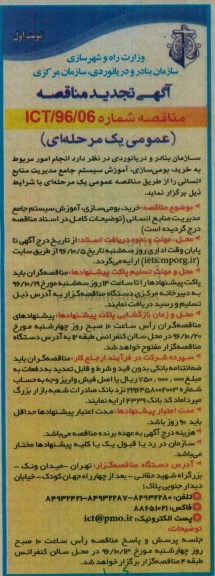 نوبت اول
وزارت راه و شهرسازی
سازمان بنادر و دریانوردی، سازمان مرکزی
آگهی تجدید مناقصه
مناقصه شماره ICT/96/06
(عمومی یک مرحله‌ای)
سازمان بنادر و دریانوردی در نظر دارد انجام امور مربوط
به خرید، بومی‌سازی، آموزش سیستم جامع مدیریت منابع
انسانی را از طریق مناقصه عمومی یک مرحله‌ای با شرایط
ذیل برگزار نماید.
موضوع مناقصه: خرید، بومی‌سازی، آموزش سیستم جامع
مدیریت منابع انسانی (توضیحات کامل در اسناد مناقصه
درج گردیده است)
محل، مهلت و نحوه دریافت اسناد: از تاریخ درج آگهی تا
پایان وقت اداری روز سه‌شنبه تاریخ ۹۶/۱۰/۵ از طریق سایت
(iets.mporg.ir) ارایه می‌گردد.
محل و مهلت تسلیم پاکت پیشنهادها: مناقصه‌گران باید
پاکت پیشنهادها را تا ساعت ۱۴ روز سه‌شنبه مورخ ۹۶/۱۰/۱۹
به دبیرخانه مرکزی دستگاه مناقصه‌گزار به آدرس ذیل
تسلیم و رسید دریافت نمایند.
محل و زمان بازگشایی پاکت پیشنهادها: پیشنهادهای
مناقصه‌گران رأس ساعت ۱۰ صبح روز چهارشنبه مورخ
۹۶/۱۰/۲۰ در محل سالن کنفرانس طبقه ۲ به آدرس دستگاه
مناقصه‌گزار مفتوح خواهد شد.
سپرده شرکت در فرآیند ارجاع کار: مناقصه‌گران باید
ضمانتنامه بانکی بدون قید و شرط و قابل تمدید به دفعات به
مبلغ ۷۵۰٬۰۰۰٬۰۰۰ ریال یا اصل فیش واریز وجه به حساب
نزد بانک صادرات شعبه بازار بزرگ
میرداماد کد بانک ۴۳۳۹ ارایه نمایند.
مدت اعتبار پیشنهادها: مدت اعتبار پیشنهادها حداقل
باید ۹۰ روز باشد.
هزینه درج آگهی به عهده برنده مناقصه می‌باشد.
سازمان در رد یا قبول یک یا کلیه پیشنهادها مختار
می‌باشد.
آدرس دستگاه مناقصه‌گزار: تهران - میدان ونک -
بزرگراه شهید حقانی - بعد از چهارراه جهان کودک - خیابان
دیدار جنوبی پلاک ۱
تلفن: ۸۴۹۳۲۲۸۰-۸۴۹۳۲۲۸۷-۸۴۹۳۲۴۲۱
فاکس: ۸۸۶۵۱۰۲۱
پست الکترونیک: ict@pmo.ir
توضیحات:
جلسه پرسش و پاسخ مناقصه رأس ساعت ۱۰ صبح
روز چهارشنبه مورخ ۹۶/۱۰/۱۳ در محل سالن کنفرانس
طبقه ۴ مناقصه‌گزار برگزار خواهد شد.